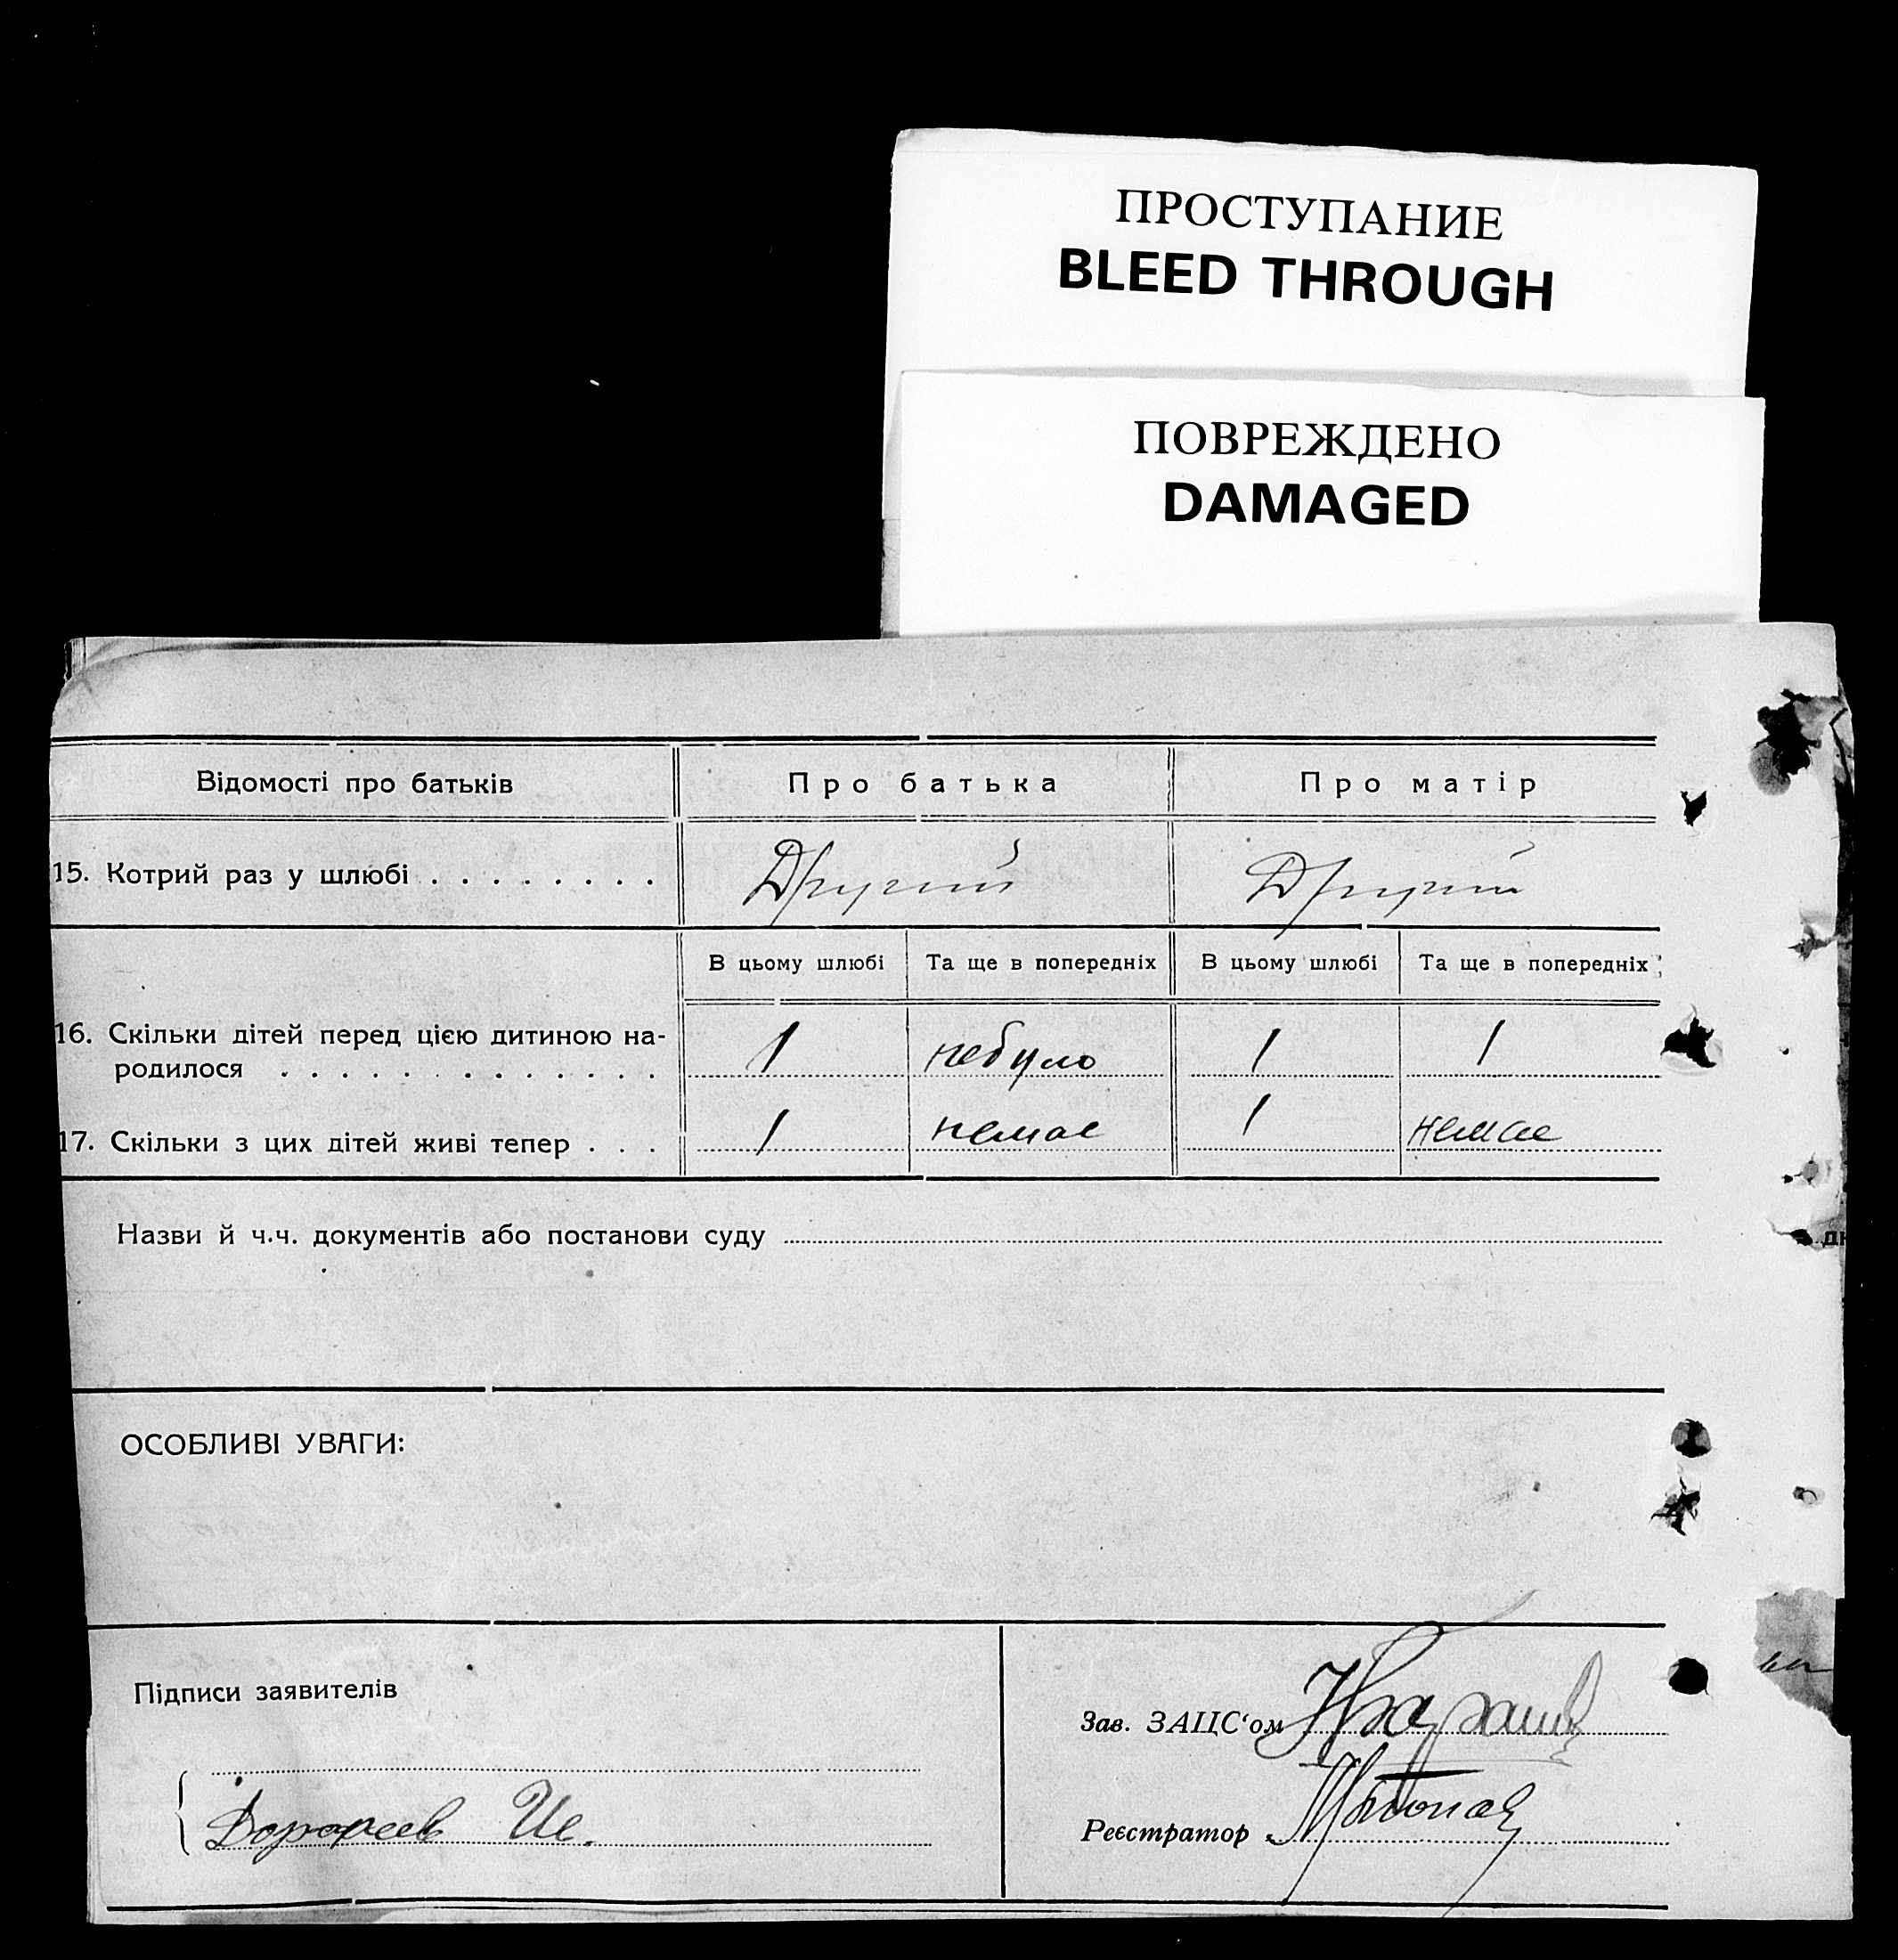 ПРОСТУПАНИЕ
BLEED THROUGH
ПОВРЕЖДЕНО
DAMAGED
Відомості про батьків Про батька Про матір
15. Котрий раз у шлюбі . . . . . . . . Другий Другий
В цьому шлюбі Та ще в попередніх В цьому шлюбі Та ще в попередніх
16. Скільки дітей перед цією дитиною на-
родилося . . . . . . . . . . . . . 1 небуло 1 1
17. Скільки з цих дітей живі тепер . . . 1 немає 1 немає
Назви й ч.ч. документів або постанови суду
ОСОБЛИВІ УВАГИ:
Підписи заявителів
Зав. ЗАЦС‘ом
Дорофеев Ис.
Реєстратор